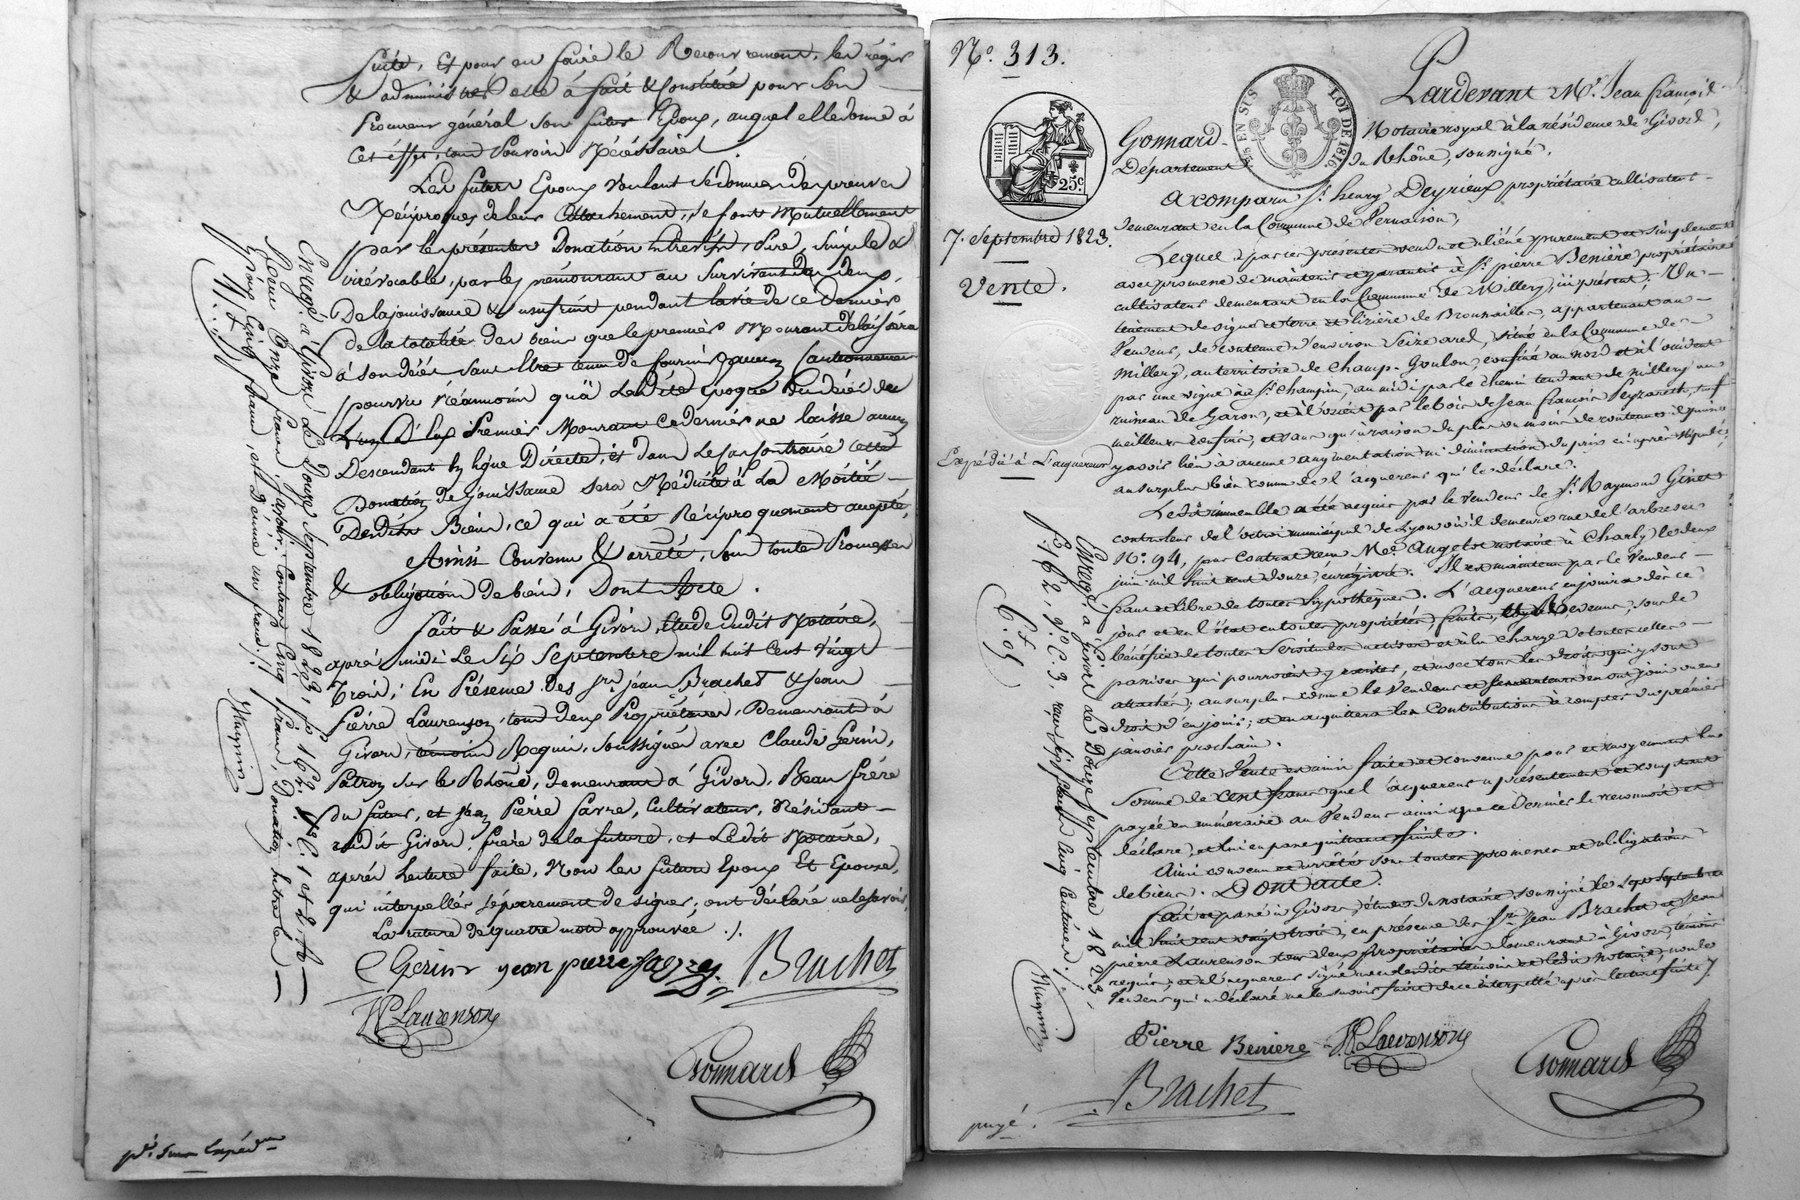 suite, Et pour en faire le Recouvrement, les régir
& administrer elle a fait & Constitué pour Son
Procureur général Son futur Epoux, auquel elle donne à
Cet effet, tout Pouvoir Nécéssaire.
Les futurs Epoux Voulant Se donner des preuves
Réciproques de leur Attachement, Se font Mutuellement
par les présentes Donation entrevifs, Pure, Simple &
irrévocable, par le prémourant au Survivant des deux,
De la jouissance & usufruit pendant la vie de ce dernier
De la totalité des biens que le premier Mourant délaissera
à son décès sans être tenu de fournir aucun Cautionnement
pourvu Néanmoins qu'à Ladite époque du décès de
L'un D'Eux Premier Mourant Ce dernier ne laisse aucun
Descendant En ligne Directe, et dans Le cas contraire cette
Donation de Jouissance sera Réduite à La Moitié
Desdits Biens, ce qui a été Réciproquement accepté.
Ainsi Convenu & arrêté, Sous toutes Promesses
& obligation de biens, Dont Acte.
Fait & Passé à Givors, étude dudit Notaire,
après midi Le Six Septembre mil huit Cent Vingt
Trois; En Présence des Srs jean Brachet & Jean
Pierre Laurenson, tous deux Propriétaires, Demeurant à
Givors, témoins Requis, Soussignés avec Claude Gerin,
Patron sur le Rhône, demeurant à Givors, Beau frère
du futur, et jean Pierre Favre, Cultivateur, Résidant
audit Givors, frère de la future, et Ledit Notaire,
après Lecture faite, Non les futurs Epoux Et Epouse,
qui interpellés séparément de signer, ont déclaré ne le savoir,
La rature de quatre mots approuvée ./.
C Gerin jean pierre favre Brachet
JP Laurenson
Gonnard
Enregé. à Givors Le Douze Septembre 1823, fo 162
Reçu Onze francs
pour Cinq francs, et Décime un franc
11 f
Mugnier
No. 313.
25c
EN SUS
LOI DE 1816
7. Septembre 1823.
Vente.
Expédié à L'acquereur
Pardevant Me. Jean françois
Gonnard Notaire royal à la résidence de Givors,
Département du Rhône, soussigné,
A comparu Sr. henry Deyrieux propriétaire cultivateur
demeurant en la Commune de Vernaison,
Lequel a par ces présentes vendu et aliéné purement et simplement
avec promesse de maintenir et garantir à Sr. pierre Benière propriétaire
cultivateur demeurant en la Commune de Millery, ici présent; Un
tènement de vigne et terre et lizière de Broussailles, appartenant au
Vendeur, de contenue d'environ Seize ares, situé en la Commune de
Millery, au territoire de Champ-Goulon, confiné au nord et à l'occident
par une vigne à Sr. Champin, au midi par le chemin tendant de millery au
ruisseau de Garon, et à l'orient par le bois de Jean françois Peyzaret, sauf
meilleurs confins, et sans qu'à raison du plus ou moins de contenue il puisse
y avoir lieu à aucune augmentation ni diminution du prix ci après stipulé,
au surplus bien connu de l'acquereur qui le déclare.
Ledit immeuble a été acquis par le Vendeur de Sr. Raymond Ginet
controleur de l'octroi municipal de Lyon où il demeure rue de l'arbre sec
No. 94, par Contrat reçu Me. Auget notaire à Charly le deux
juin mil huit cent douze, enregistré. Il est maintenu par le Vendeur
franc et libre de toutes hypothèques. L'acquereur en jouira dès ce
jour et en l'état en toute propriété, fruits, Revenus, sous le
bénéfice de toutes Servitudes actives et à la charge de toutes celles
passives qui pourroient y exister, et avec tous les droits qui y sont
attachés; au surplus comme le Vendeur et ses auteurs en ont joui ou eu
droit d'en jouir; et en acquittera les Contributions à compter du premier
janvier prochain.
Cette Vente est ainsi faite et consense pour et moyennant la
Somme de cent francs que l'acquereur a présentement et comptant
payée en numéraire au Vendeur ainsi que ce Dernier le reconnoit et
déclare, et lui en passe quittance finale.
Ainsi convenu et arrêté sous toutes promesses et obligations
de biens. Dont acte.
fait et passé à Givors, étude du notaire soussigné le sept Septembre
mil huit cent vingt trois, en présence des Srs Jean Brachet et Jean
pierre Laurenson tous deux propriétaires demeurant à Givors, témoins
requis, et l'acquereur signé avec lesdits témoins et ledit Notaire, non le
Vendeur qui a déclaré ne le savoir faire de ce interpellé après lecture faite ./.
Pierre Beniere JP Laurenson
Gonnard
Brachet
Enregé. à Givors Le Douze Septembre 1823,
fo. 162, vo. C. 3, reçu Six francs Cinq Centimes
6 f 05
Mugnier
payé.